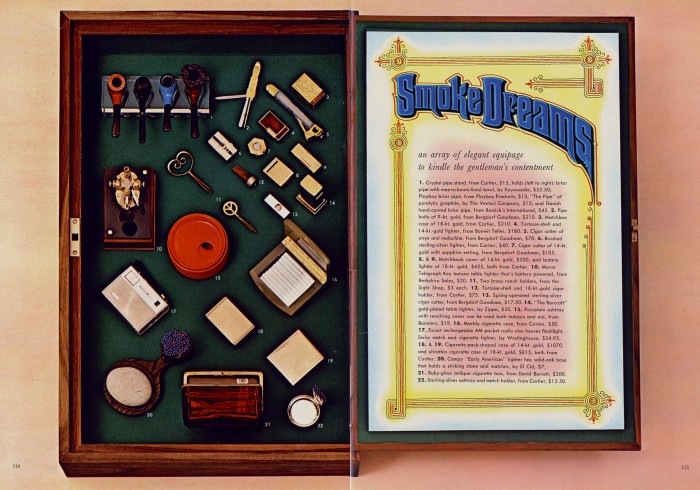 Smoke Dreams
an array of elegant equipage
to kindle the gentleman's contentment
1. Crystal pipe stand, from Cartier, $15, holds (left to right): briar
pipe with meerschaum-lined bowl, by Kaywoodie, $22.50;
Playboy briar pipe, from Playboy Products, $15; "The Pipe" of
pyrolytic graphite, by The Venturi Company, $15; and Danish
hand-carved briar pipe, from International, $45. 2. Pipe
knife of 9-kt. gold, from Bergdorf Goodman, $210. 3. Matchbox
case of 18-kt. gold, from Cartier, $210. 4. Tortoise-shell and
14-kt.-gold lighter, from Bonwit Teller, $180. 5. Cigar cutter of
onyx and malachite, from Bergdorf Goodman, $70. 6. Brushed
sterling-silver lighter, from Cartier, $40. 7. Cigar cutter of 14-kt.
gold with sapphire setting, from Bergdorf Goodman, $105.
8. & 9. Matchbook cover of 14-kt. gold, $200, and butane
lighter of 18-kt. gold, $425, both from Cartier. 10. Morse
Telegraph Key butane table lighter that's battery powered, from
Berkshire Sales, $30. 11. Two brass roach holders, from the
Light Shop, $3 each. 12. Tortoise-shell and 18-kt.-gold cigar
holder, from Cartier, $75. 13. Spring-operated sterling-silver
cigar cutter, from Bergdorf Goodman, $17.50. 14. "The Barcroft"
gold-plated table lighter, by Zippo, $20. 15. Porcelain ashtray
with revolving cover can be used both indoors and out, from
Bonniers, $19. 16. Marble cigarette case, from Cartier, $50.
17. Escort rechargeable AM pocket radio also houses flashlight,
Swiss watch and cigarette lighter, by Westinghouse, $34.95.
18. & 19. Cigarette-pack-shaped case of 14-kt. gold, $1070,
and ultrathin cigarette case of 18-kt. gold, $815, both from
Cartier. 20. Campy "Early American" lighter has solid-oak base
that holds a striking stone and matches, by El Cid, $7.
21. Ruby-glass antique cigarette box, from David Barrett, $300.
22. Sterling-silver ashtray and match holder, from Cartier, $12.50.
114
115